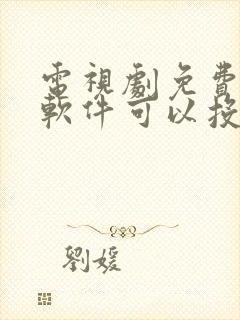 電視劇免費
軟件可以投
劉媛